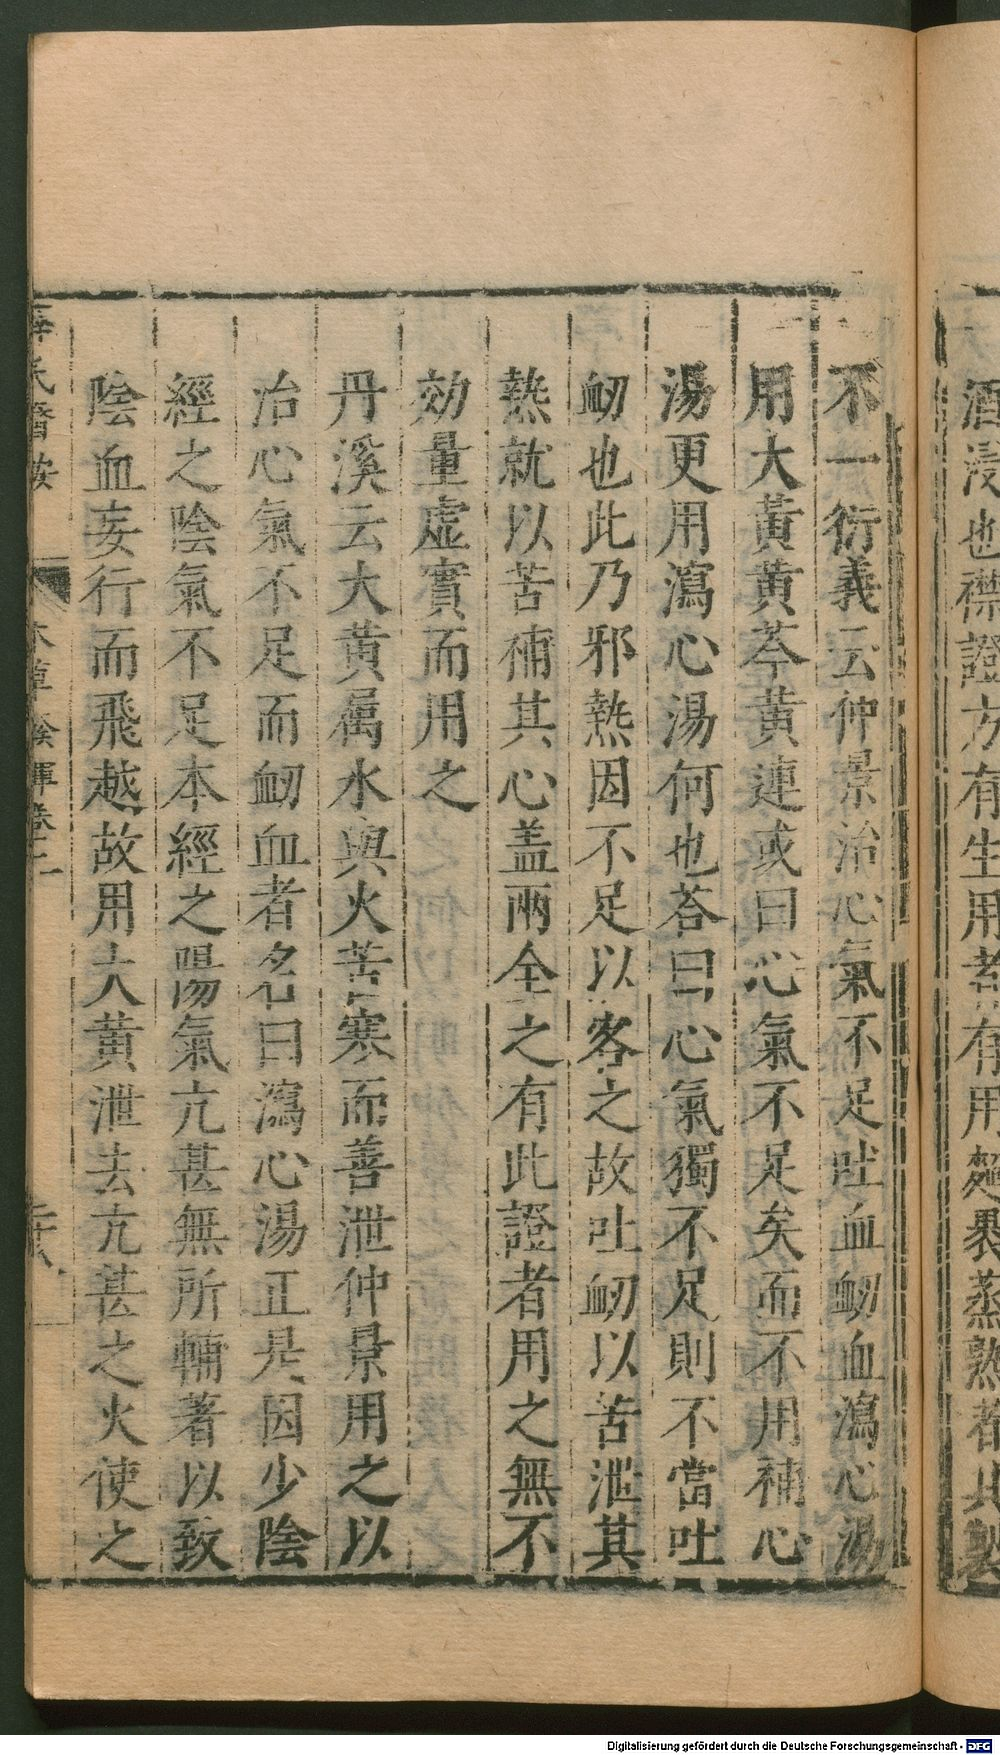 酒浸也襟證方有生用者有用麪裹蒸熟者其製
不一衍義云仲景治心氣不足吐血衂血瀉心湯
用大黃黃芩黃連或曰心氣不足矣而不用補心
湯更用瀉心湯何也荅曰心氣獨不足則不當吐
衂也此乃邪熱因不足以客之故吐衂以苦泄其
熱就以苦補其心盖兩全之有此證者用之無不
効量虛實而用之
丹溪云大黃屬水與火苦寒而善泄仲景用之以
治心氣不足而衂血者名曰瀉心湯正是因少陰
經之陰氣不足本經之陽氣亢甚無所輔著以致
陰血妄行而飛越故用大黃泄去亢甚之火使之
氏醫按 本草 卷二 二十八
Digitalisierung gefördert durch die Deutsche Forschungsgemeinschaft - DFG